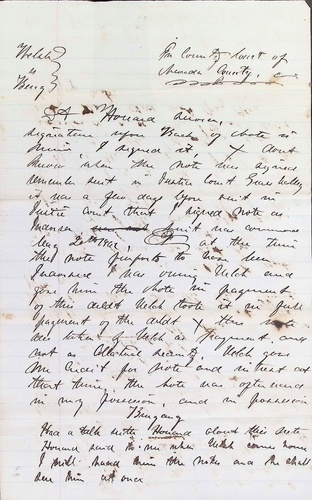 Welch
vs
Berg
In County Court of
Nevada County,
Howard sworn,
signature upon Back of Note is
mine, I signed it I dont
know when the note was signed
remember suit in Justice Court Grass Valley
it was a few days before suit in
Justice Court that I signed Note as
suit was commenced
Aug 20th at the time
the note purports to have been
I was owing Welch and
gave him the Note in payment
of this debt Welch took it in full
payment of the debt the note
was taken by Welch as payment and
not as collateral security, Welch gave
me credit for note and interest at
that time, the note was often
in my possession, and in possession
Had a talk with Howard about this note
Howard said to me when Welch comes home
I will hand him the notes and he shall
sue him at once